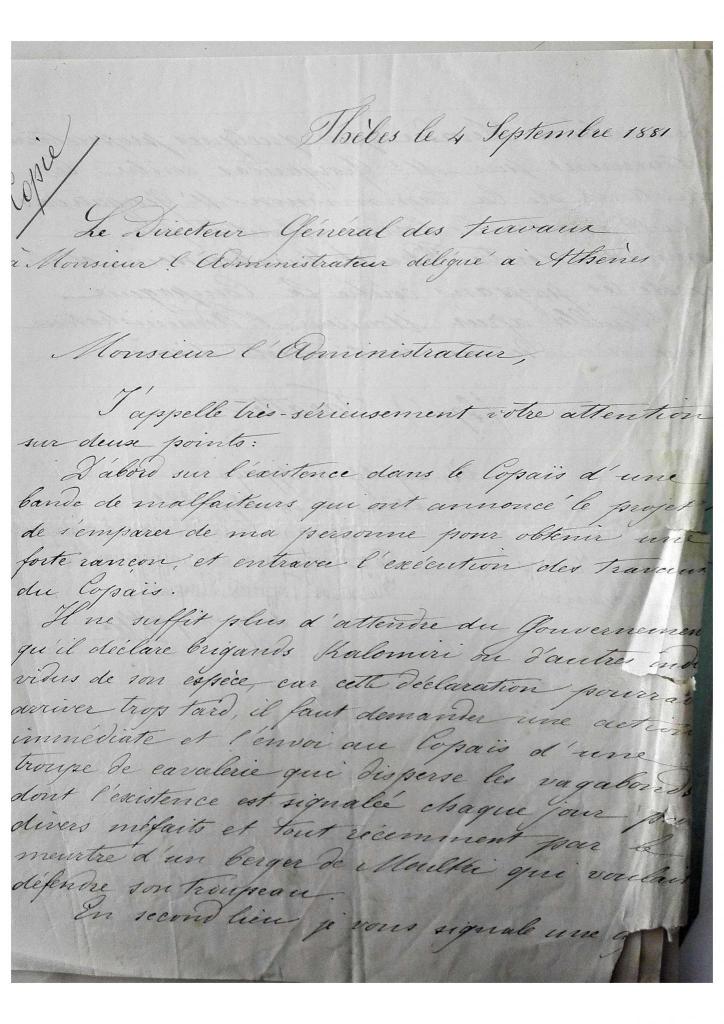 Copie
Thèbes le 4 Septembre 1881
Le Directeur Général des travaux
à Monsieur l'Administrateur délégué à Athènes
Monsieur l'Administrateur,
J'appelle très-sérieusement votre attention
sur deux points:
D'abord sur l'éxistence dans le Copaïs d'une
bande de malfaiteurs qui ont annoncé le projet
de s'emparer de ma personne pour obtenir une
forte rançon, et entraver l'exécution des travaux
du Copaïs.
Il ne suffit plus d'attendre du Gouvernemen
qu'il déclare brigands Kalomiri ou d'autres indi
vidus de son espèce, car cette déclaration pourrai
arriver trop tard, il faut demander une action
immédiate et l'envoi au Copaïs d'une
troupe de cavalerie qui disperse les vagabonds
dont l'existence est signalée chaque jour par
divers méfaits et tout récemment par le
meurtre d'un berger de Moulki qui voulait
défendre son troupeau.
En second lieu je vous signale une